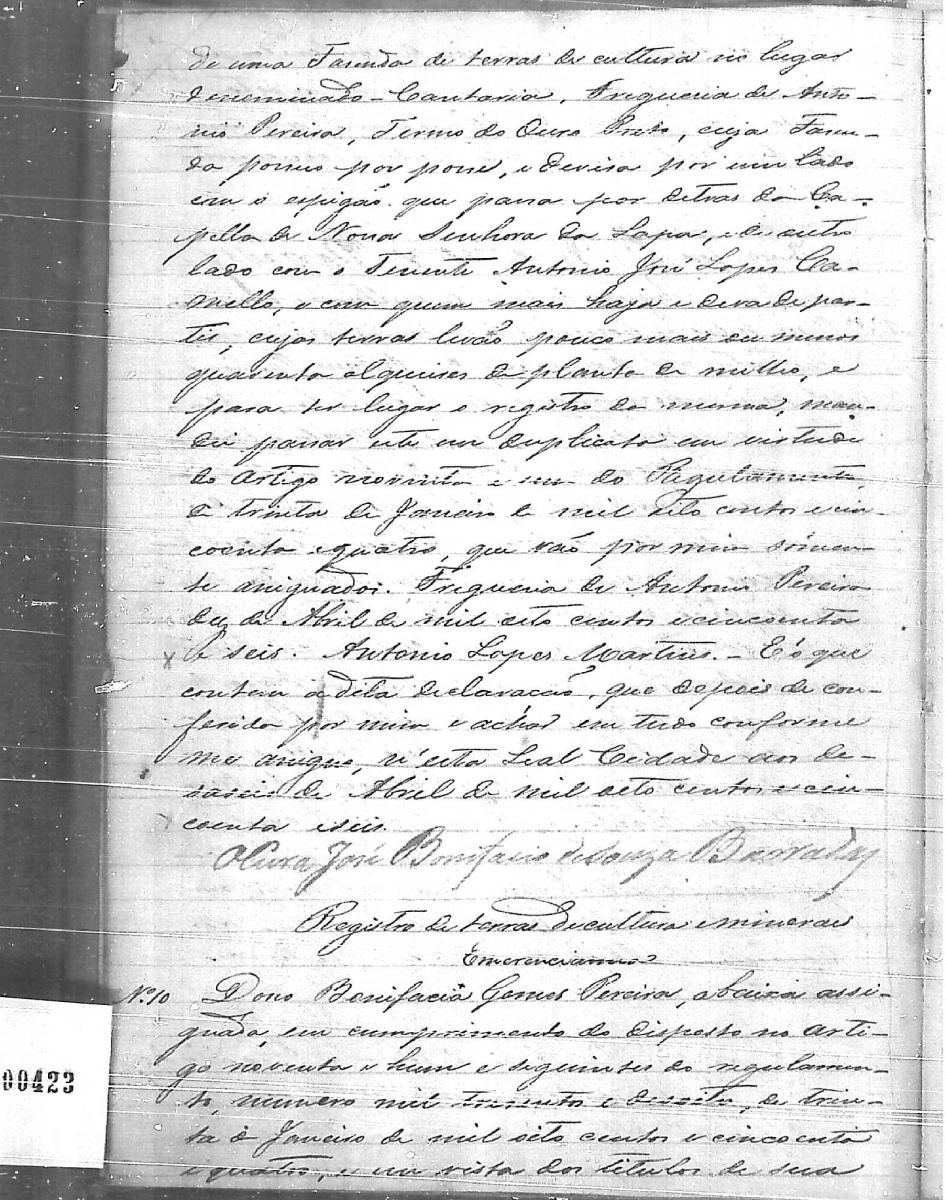 de uma Fasenda de terras de cultura no lugar
denominado - Cantaria, Freguesia de Anto-
nio Pereira, Termo do Ouro Preto, cuja Fasen-
da possuo por posse, e devisa por um lado
com o espigão que passa por detras da Ca-
pella de Nossa Senhora da Lapa, e de outro
lado com o Tenente Antonio José Lopes Ca-
mello, e com quem mais haja e deva de par-
tir, cujas terras levão pouco mais ou menos
quarenta alqueires de planta de milho, e
para ter lugar o registro da mesma, man-
dei passar este em duplicata em virtude
do artigo noventa e um do Regulamento
de trinta de Janeiro de mil oito centos e cin-
coenta e quatro, que vão por mim sómen-
te assignados. Freguesia de Antonio Pereira
dez de Abril de mil oito centos e cincoenta
e seis. Antonio Lopes Martins. - E é o que
contem a dita declaracão, que depois de con-
ferida por mim e achar em tudo conforme
me assigno, n'esta Leal Cidade aos de-
saseis de Abril de mil oito centos e cin-
coenta e seis.
O Cura José Bonifacio de Souza Barradas
Registro de terras de cultura e minerais
Emerencianna
Nº 10 Dona Bonifacia Gomes Pereira, abaixo assi-
gnada, em cumprimento do disposto no arti-
go noventa e hum e seguintes do regulamen-
to, numero mil tresentos e desoito, de trin-
ta de Janeiro de mil oito centos e cincoenta
e quatro, e em vista dos titulos de sua
00423